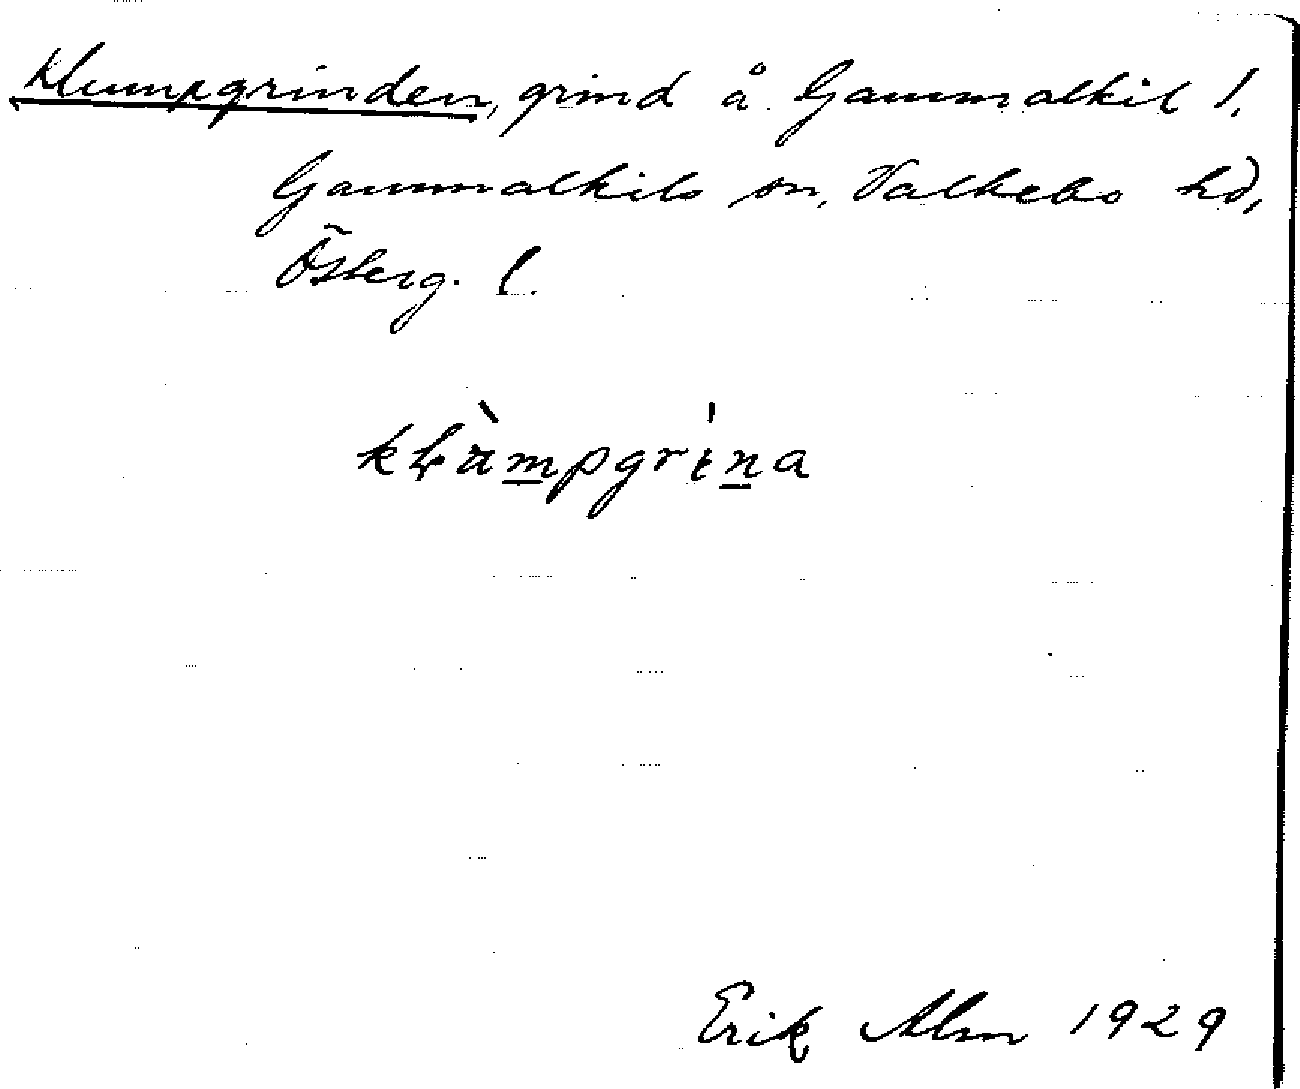 Klumpgrinden, grind å Gammalkil 1.
Gammalkils sn, Valkebo hd,
Österg. l.
kłùmpgrina
Erik Alm 1929